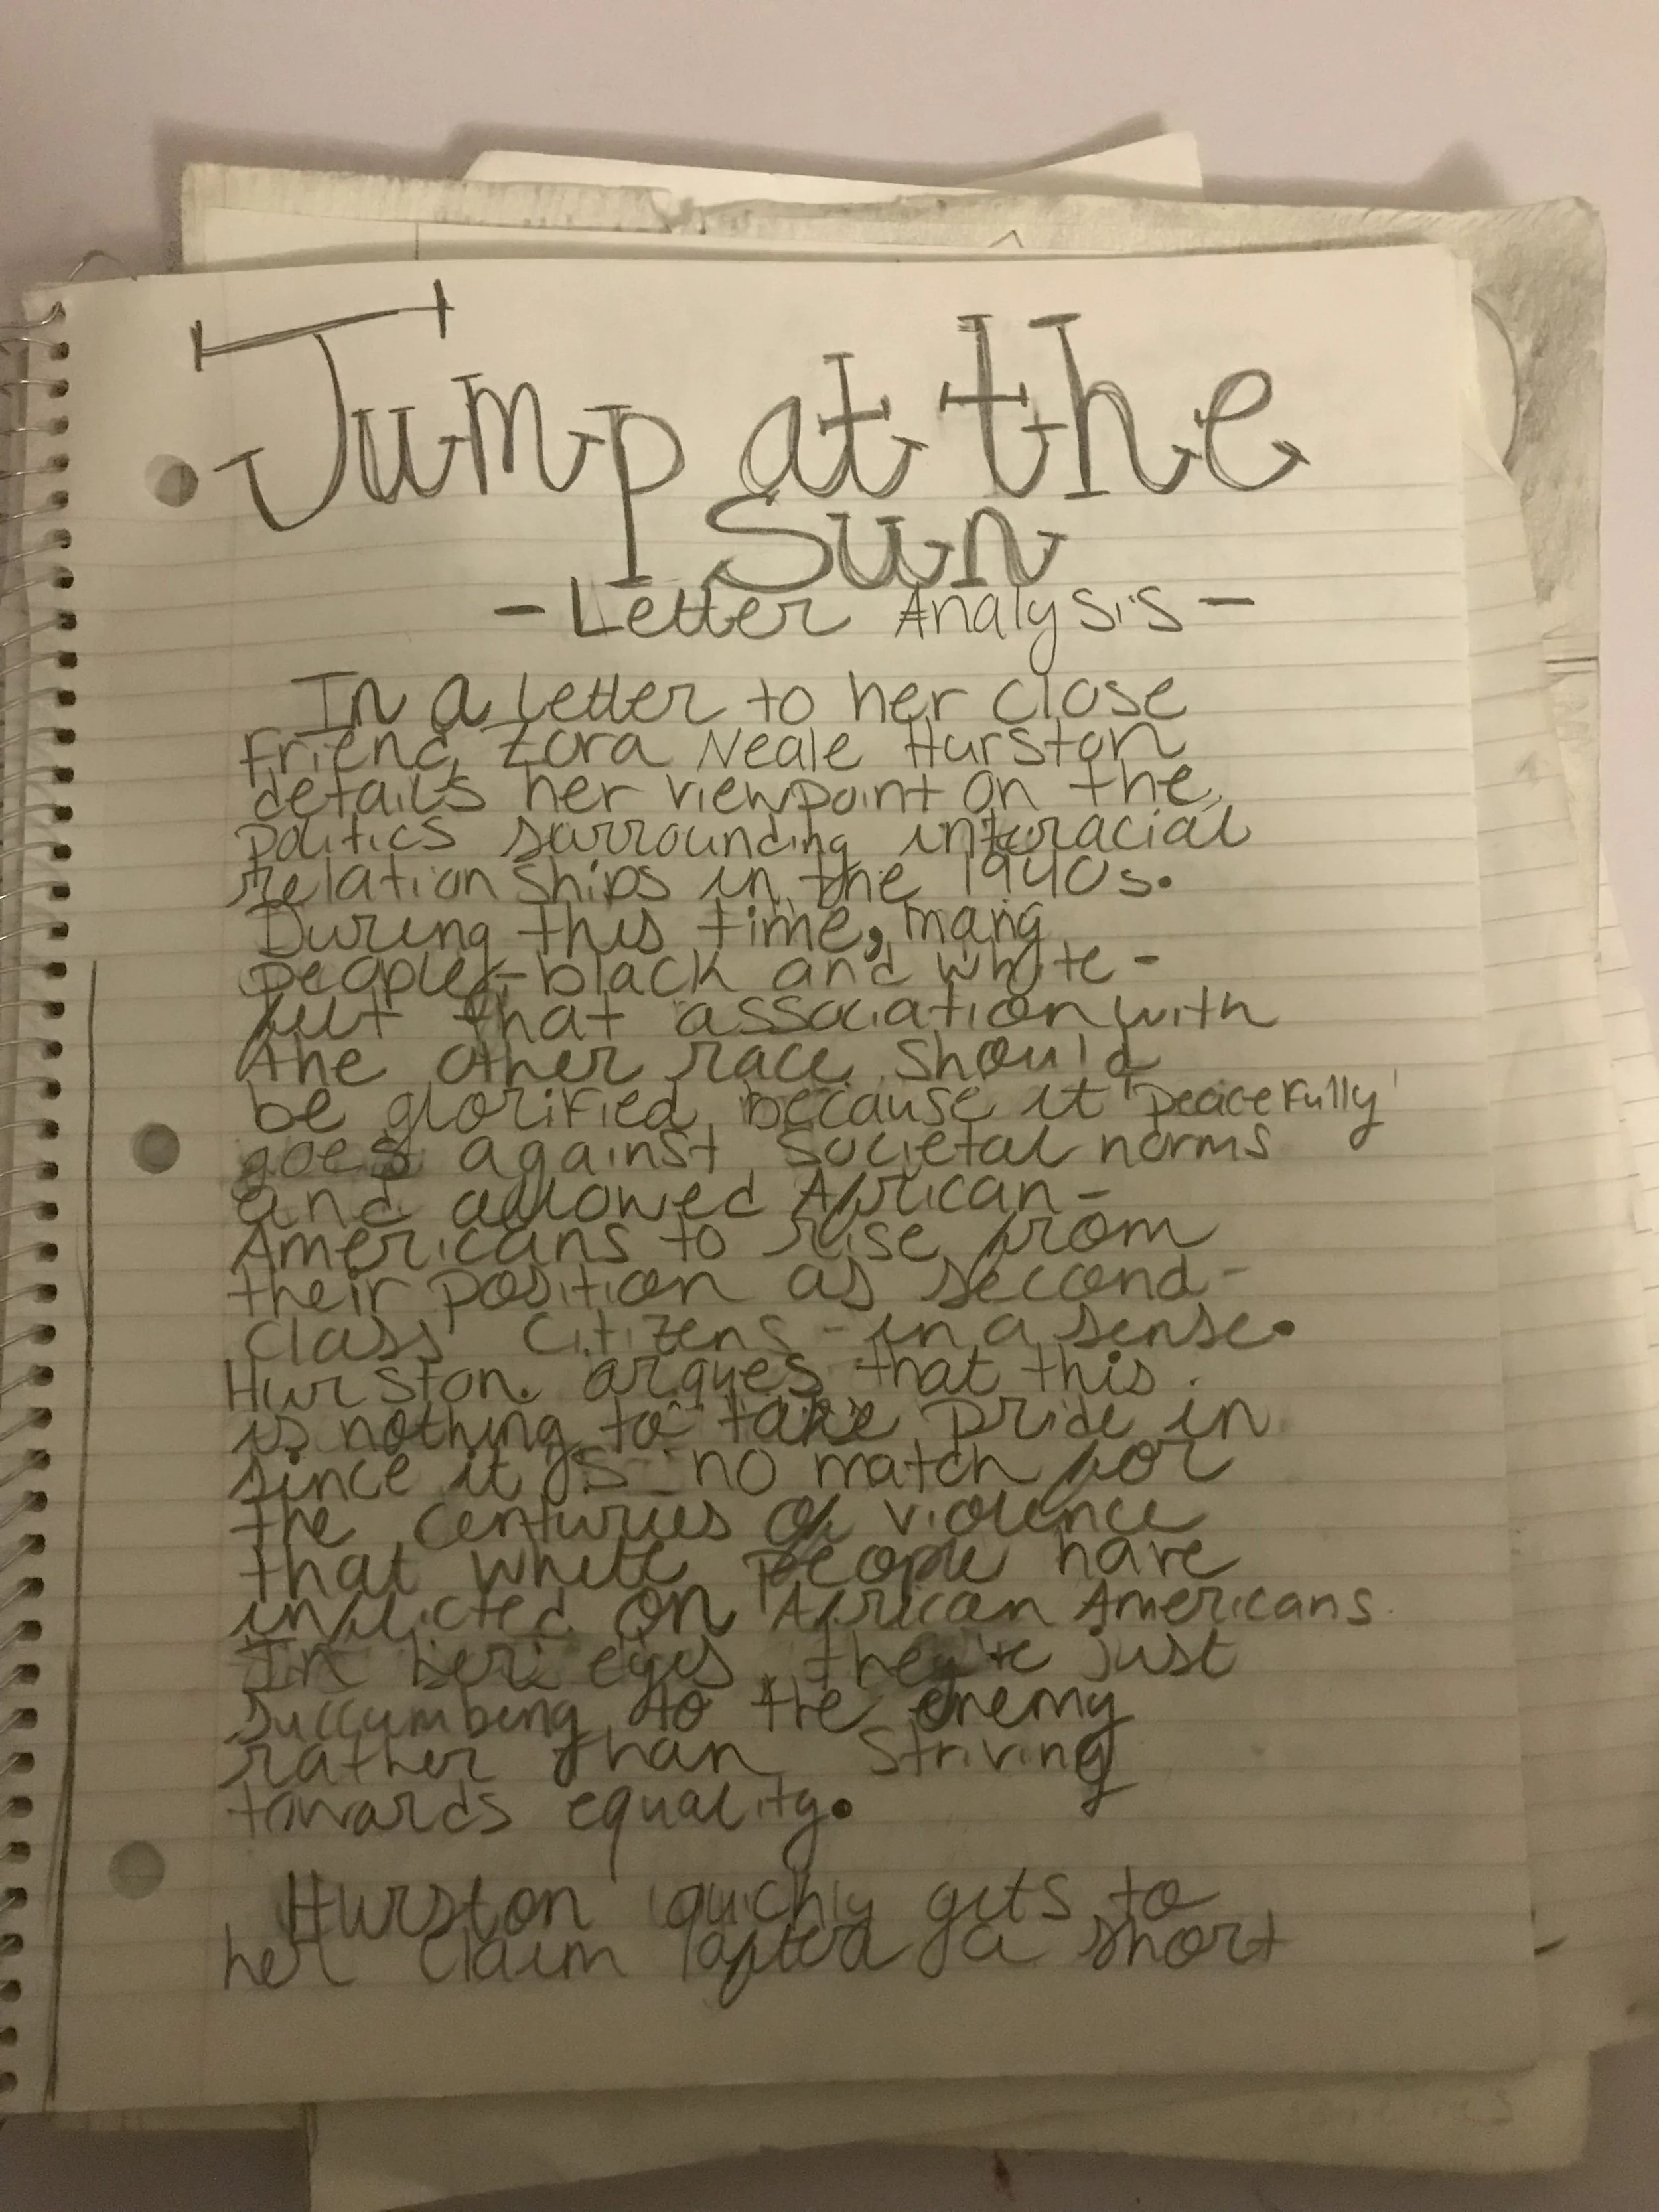 Jump at the
Sun
- Letter Analysis -
In a letter to her close
friend, Zora Neale Hurston
details her viewpoint on the
politics surrounding interracial
relationships in the 1940s.
During this time, many
people - black and white -
felt that association with
the other race should
be glorified because it 'peacefully'
goes against societal norms
and allowed African-
Americans to rise from
their position as second-
class citizens - in a sense.
Hurston argues that this
is nothing to take pride in
since it is no match for
the centuries of violence
that white people have
inflicted on African Americans.
In her eyes, they're just
succumbing to the enemy
rather than striving
towards equality.
Hurston quickly gets to
her claim after a short